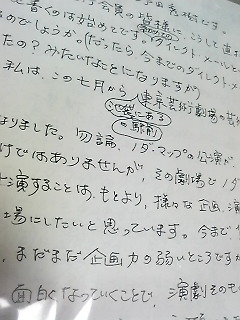 行会員の皆様に、こうして直
書くのは始めてです。ダイレクト・メールと
のでしょうか。(だったら今までのダイレクト・メ
たの?みたいなことになりますが)
私は、この七月から東京芸術劇場の芸
池袋にある
の駅前
なりました。勿論、ノダ・マップの公演が、
けではありませんが、その劇場でノダ
上演することは、もとより、様々な企画、演
場にしたいと思っています。今まで
、まだまだ企画力の弱いところですか
面白くなっていくことで、演劇そのも